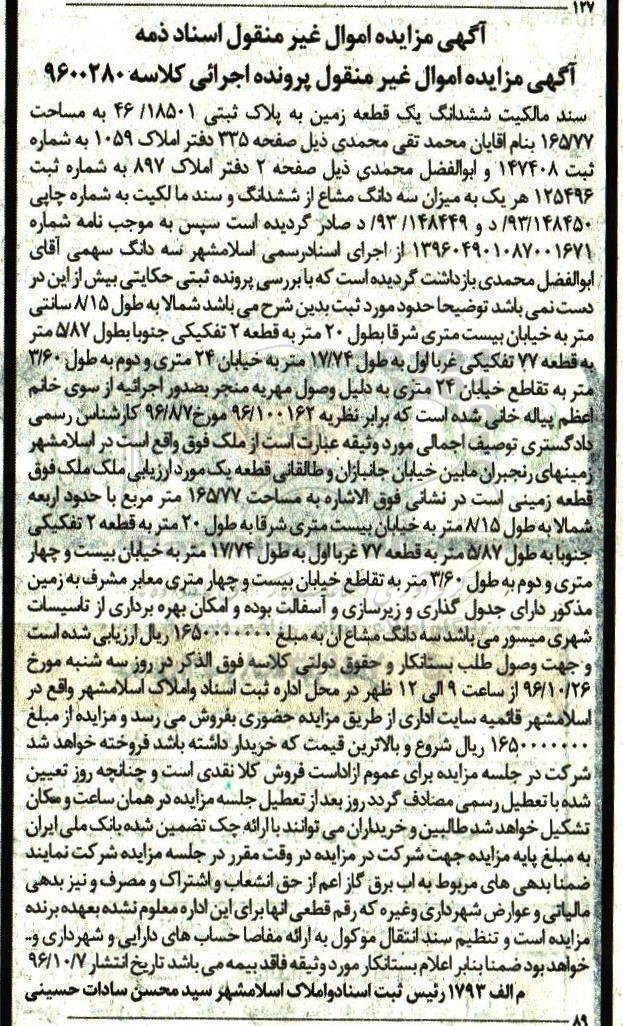 ۱۲۷
آگهی مزایده اموال غیر منقول اسناد ذمه
آگهی مزایده اموال غیر منقول پرونده اجرائی کلاسه ۹۶۰۰۲۸۰
سند مالکیت ششدانگ یک قطعه زمین به پلاک ثبتی ۱۸۵۰۱/ ۴۶ به مساحت
۱۶۵/۷۷ بنام اقایان محمد تقی محمدی ذیل صفحه ۳۳۵ دفتر املاک ۱۰۵۹ به شماره
ثبت ۱۴۷۴۰۸ و ابوالفضل محمدی ذیل صفحه ۲ دفتر املاک ۸۹۷ به شماره ثبت
۱۲۵۴۹۶ هر یک به میزان سه دانگ مشاع از ششدانگ و سند ما لکیت به شماره چاپی
۹۳/۱۴۸۴۵۰/ د و ۱۴۸۴۴۹/ ۹۳/ د صادر گردیده است سپس به موجب نامه شماره
۱۳۹۶۰۴۹۰۱۰۸۷۰۰۱۶۷۱ از اجرای اسنادرسمی اسلامشهر سه دانگ سهمی آقای
ابوالفضل محمدی بازداشت گردیده است که با بررسی پرونده ثبتی حکایتی بیش از این در
دست نمی باشد توضیحا حدود مورد ثبت بدین شرح می باشد شمالا به طول ۸/۱۵ سانتی
متر به خیابان بیست متری شرقا بطول ۲۰ متر به قطعه ۲ تفکیکی جنوبا بطول ۵/۸۷ متر
به قطعه ۷۷ تفکیکی غربا اول به طول ۱۷/۷۴ متر به خیابان ۲۴ متری و دوم به طول ۳/۶۰
متر به تقاطع خیابان ۲۴ متری به دلیل وصول مهریه منجر بصدور اجرائیه از سوی خانم
اعظم پیاله خانی شده است که برابر نظریه ۹۶/۱۰۰۱۶۲ مورخ ۹۶/۸/۷ کارشناس رسمی
دادگستری توصیف اجمالی مورد وثیقه عبارت است از ملک فوق واقع است در اسلامشهر
زمینهای رنجبران مابین خیابان جانبازان و طالقانی قطعه یک مورد ارزیابی ملک ملک فوق
قطعه زمینی است در نشانی فوق الاشاره به مساحت ۱۶۵/۷۷ متر مربع با حدود اربعه
شمالا به طول ۸/۱۵ متر به خیابان بیست متری شرقا به طول ۲۰ متر به قطعه ۲ تفکیکی
جنوبا به طول ۵/۸۷ متر به قطعه ۷۷ غربا اول به طول ۱۷/۷۴ متر به خیابان بیست و چهار
متری و دوم به طول ۳/۶۰ متر به تقاطع خیابان بیست و چهار متری معابر مشرف به زمین
مذکور دارای جدول گذاری و زیرسازی و آسفالت بوده و امکان بهره برداری از تاسیسات
شهری میسور می باشد سه دانگ مشاع ان به مبلغ ۱۶۵۰۰۰۰۰۰۰ ریال ارزیابی شده است
و جهت وصول طلب بستانکار و حقوق دولتی کلاسه فوق الذکر در روز سه شنبه مورخ
۹۶/۱۰/۲۶ از ساعت ۹ الی ۱۲ ظهر در محل اداره ثبت اسناد واملاک اسلامشهر واقع در
اسلامشهر قائمیه سایت اداری از طریق مزایده حضوری بفروش می رسد و مزایده از مبلغ
۱۶۵۰۰۰۰۰۰۰ ریال شروع و بالاترین قیمت که خریدار داشته باشد فروخته خواهد شد
شرکت در جلسه مزایده برای عموم ازاداست فروش کلا نقدی است و چنانچه روز تعیین
شده با تعطیل رسمی مصادف گردد روز بعد از تعطیل جلسه مزایده در همان ساعت و مکان
تشکیل خواهد شد طالبین و خریداران می توانند با ارائه چک تضمین شده بانک ملی ایران
به مبلغ پایه مزایده جهت شرکت در مزایده در وقت مقرر در جلسه مزایده شرکت نمایند
ضمنا بدهی های مربوط به اب برق گاز اعم از حق انشعاب و اشتراک و مصرف و نیز بدهی
مالیاتی و عوارض شهرداری وغیره که رقم قطعی انها برای این اداره معلوم نشده بعهده برنده
مزایده است و تنظیم سند انتقال موکول به ارائه مفاصا حساب های دارایی و شهرداری و..
خواهد بود ضمنا بنابر اعلام بستانکار مورد وثیقه فاقد بیمه می باشد تاریخ انتشار ۹۶/۱۰/۷
م الف ۱۷۹۳ رئیس ثبت اسنادواملاک اسلامشهر سید محسن سادات حسینی
۸۹